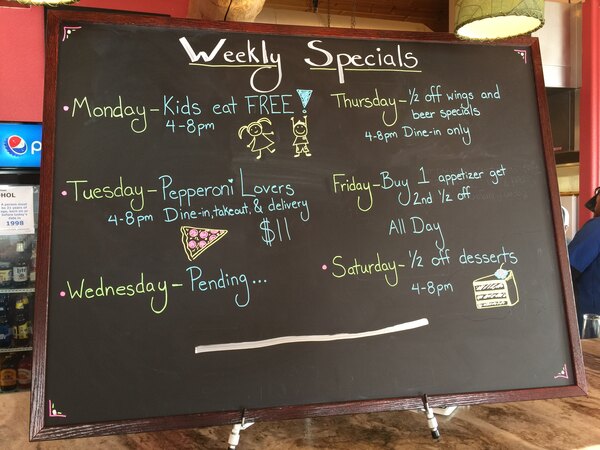 Weekly Specials
Monday - Kids eat FREE!
4-8pm
Tuesday - Pepperoni Lovers
4-8pm Dine-in, takeout, & delivery
$11
Wednesday - Pending...
Thursday - 1/2 off wings and
beer specials
4-8pm Dine-in only
Friday - Buy 1 appetizer get
2nd 1/2 off
All Day
Saturday - 1/2 off desserts
4-8pm
1998